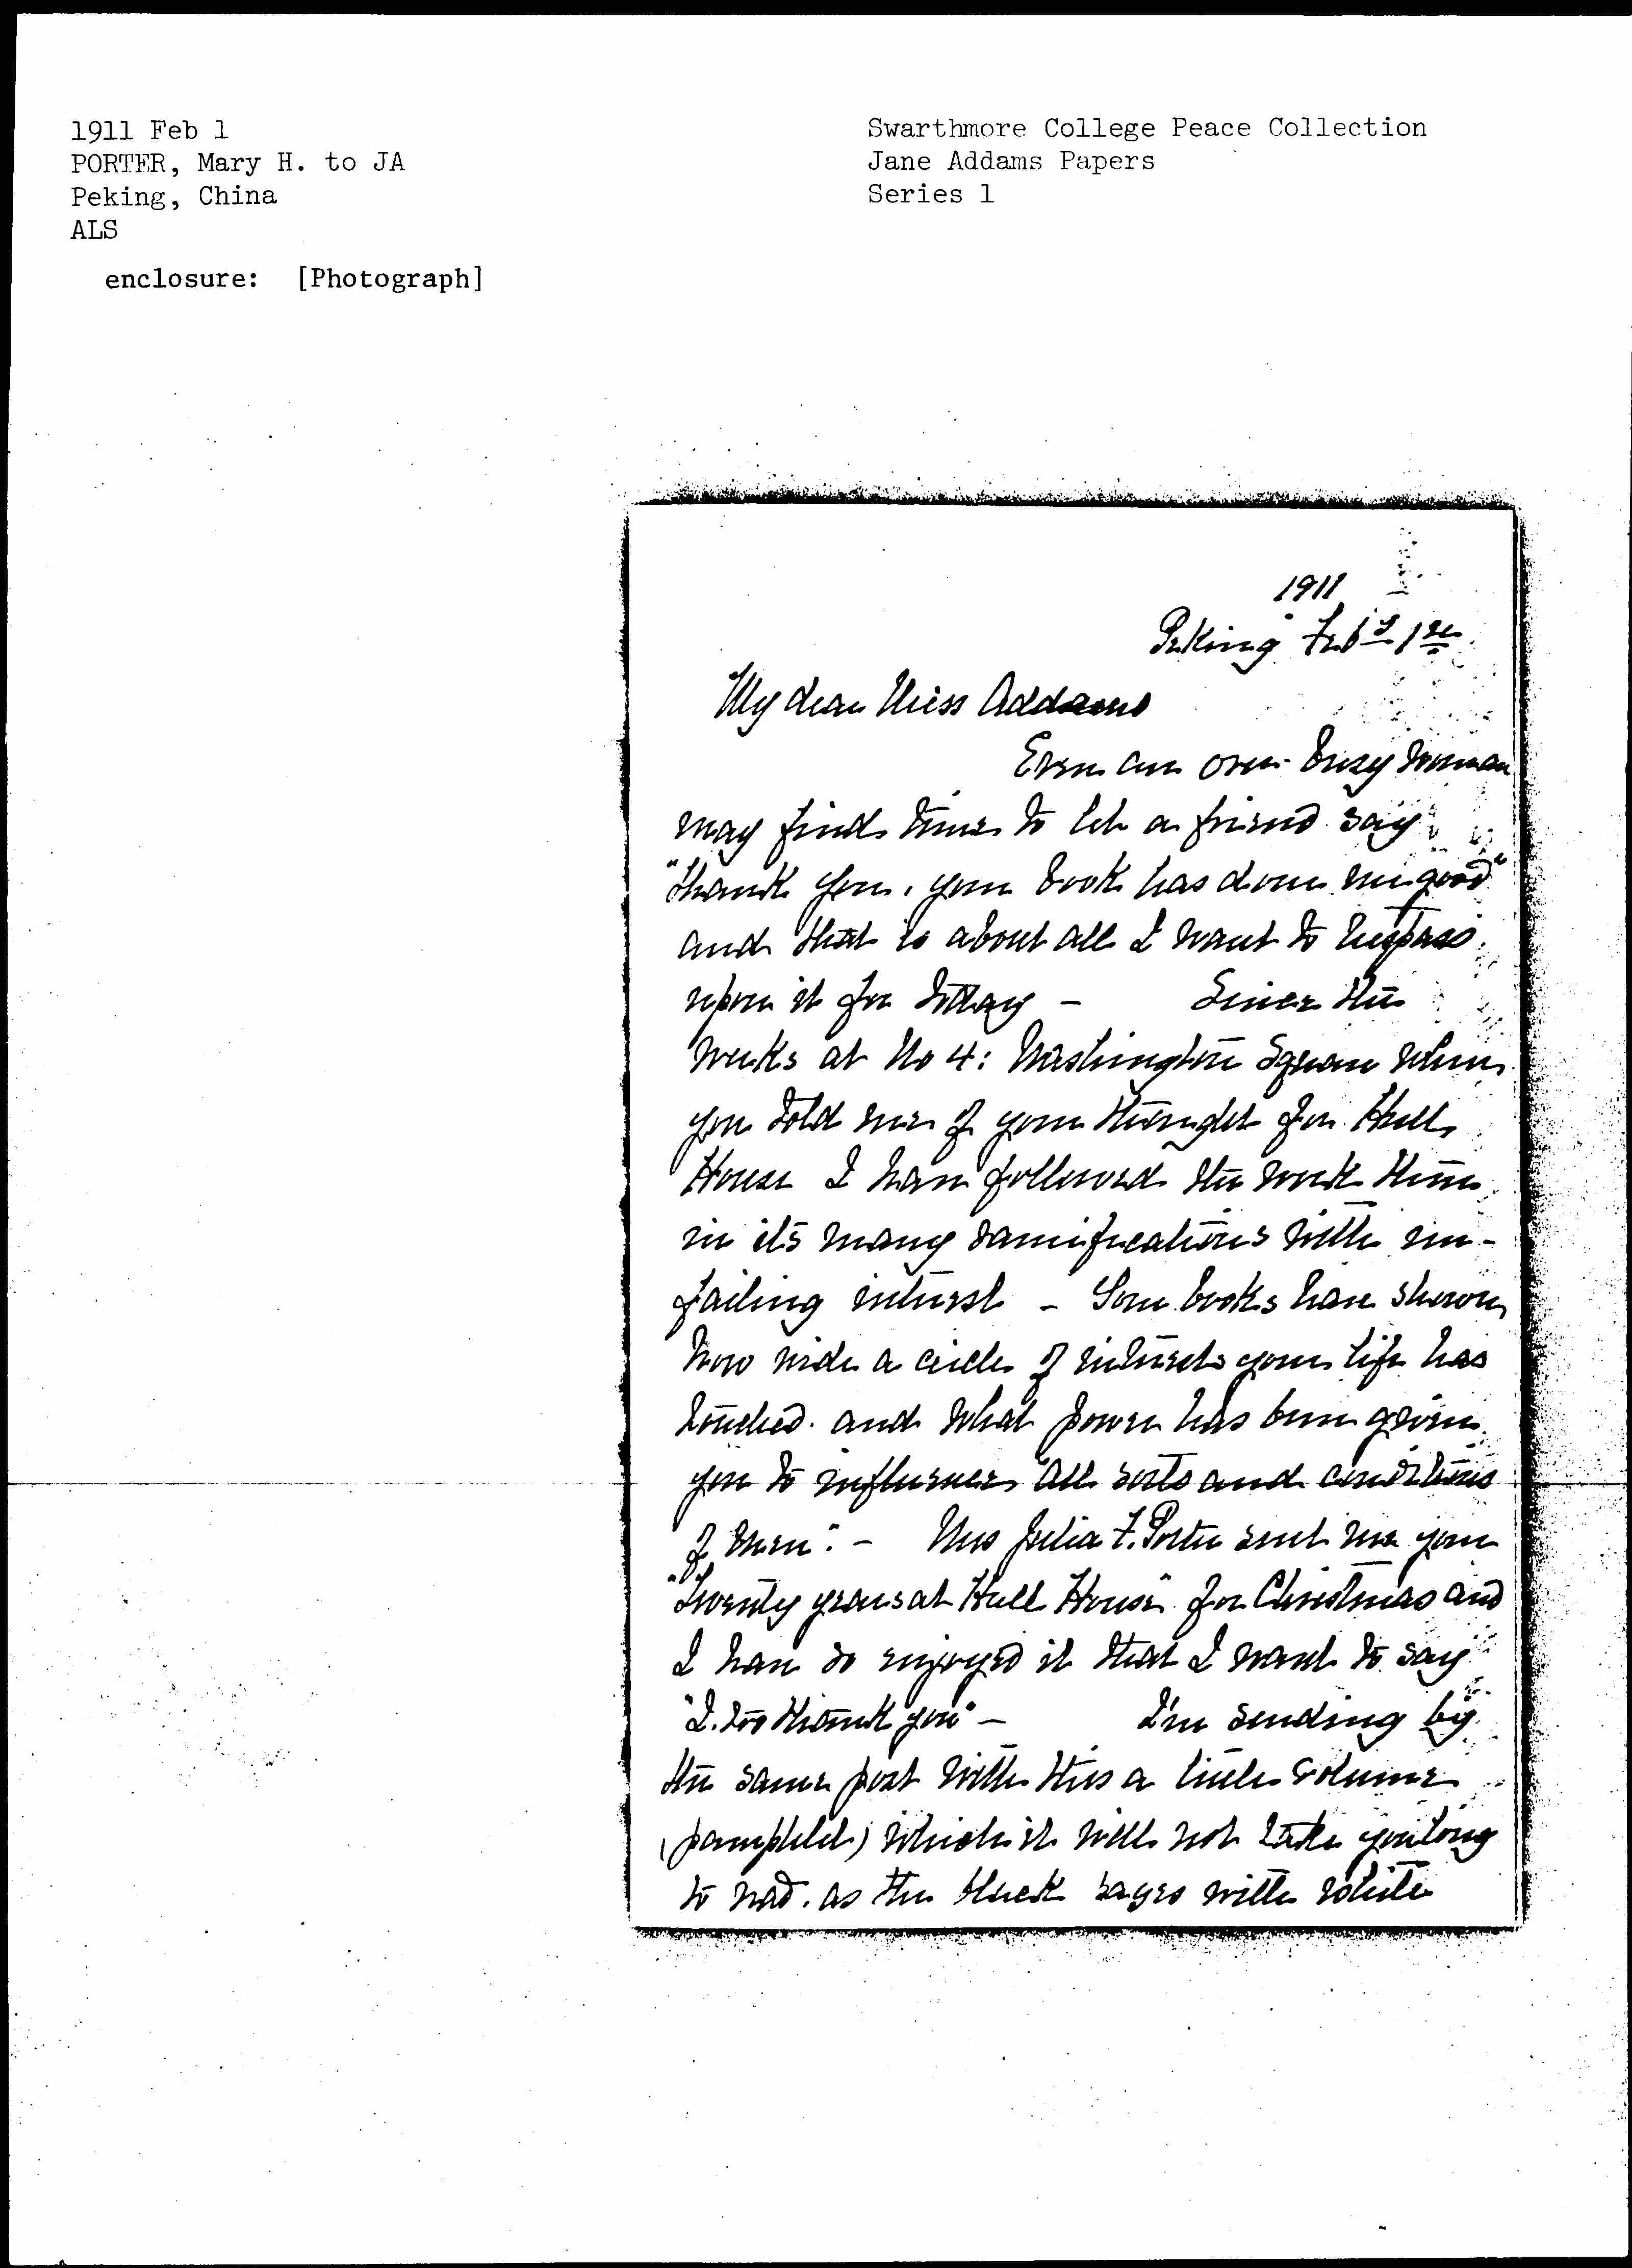 1911 Feb 1
PORTER, Mary H. to JA
Peking, China
ALS
enclosure: [Photograph]
Swarthmore College Peace Collection
Jane Addams Papers
Series 1
1911
Peking Feby 1st
My dear Miss Addams
Even an over-busy woman
may find time to let a friend say
"thank you, your book has done me good"
and that is about all I want to trespass
upon it for today - Since the
weeks at No 4: Washington Square when
you told me of your thought for Hull
House I have followed the work there
in its many ramifications with un-
failing interest - Your books have shown
how wide a circle of interests your life has
touched. and what power has been given
you to influence "all sorts and conditions
of men". - Mrs Julia F. Porter sent me your
"Twenty years at Hull House" for Christmas and
I have so enjoyed it that I want to say
"I. too thank you" - I'm sending by
the same post with this a little volume
(pamphlet) which it will not take you long
to read. as the black pages with white